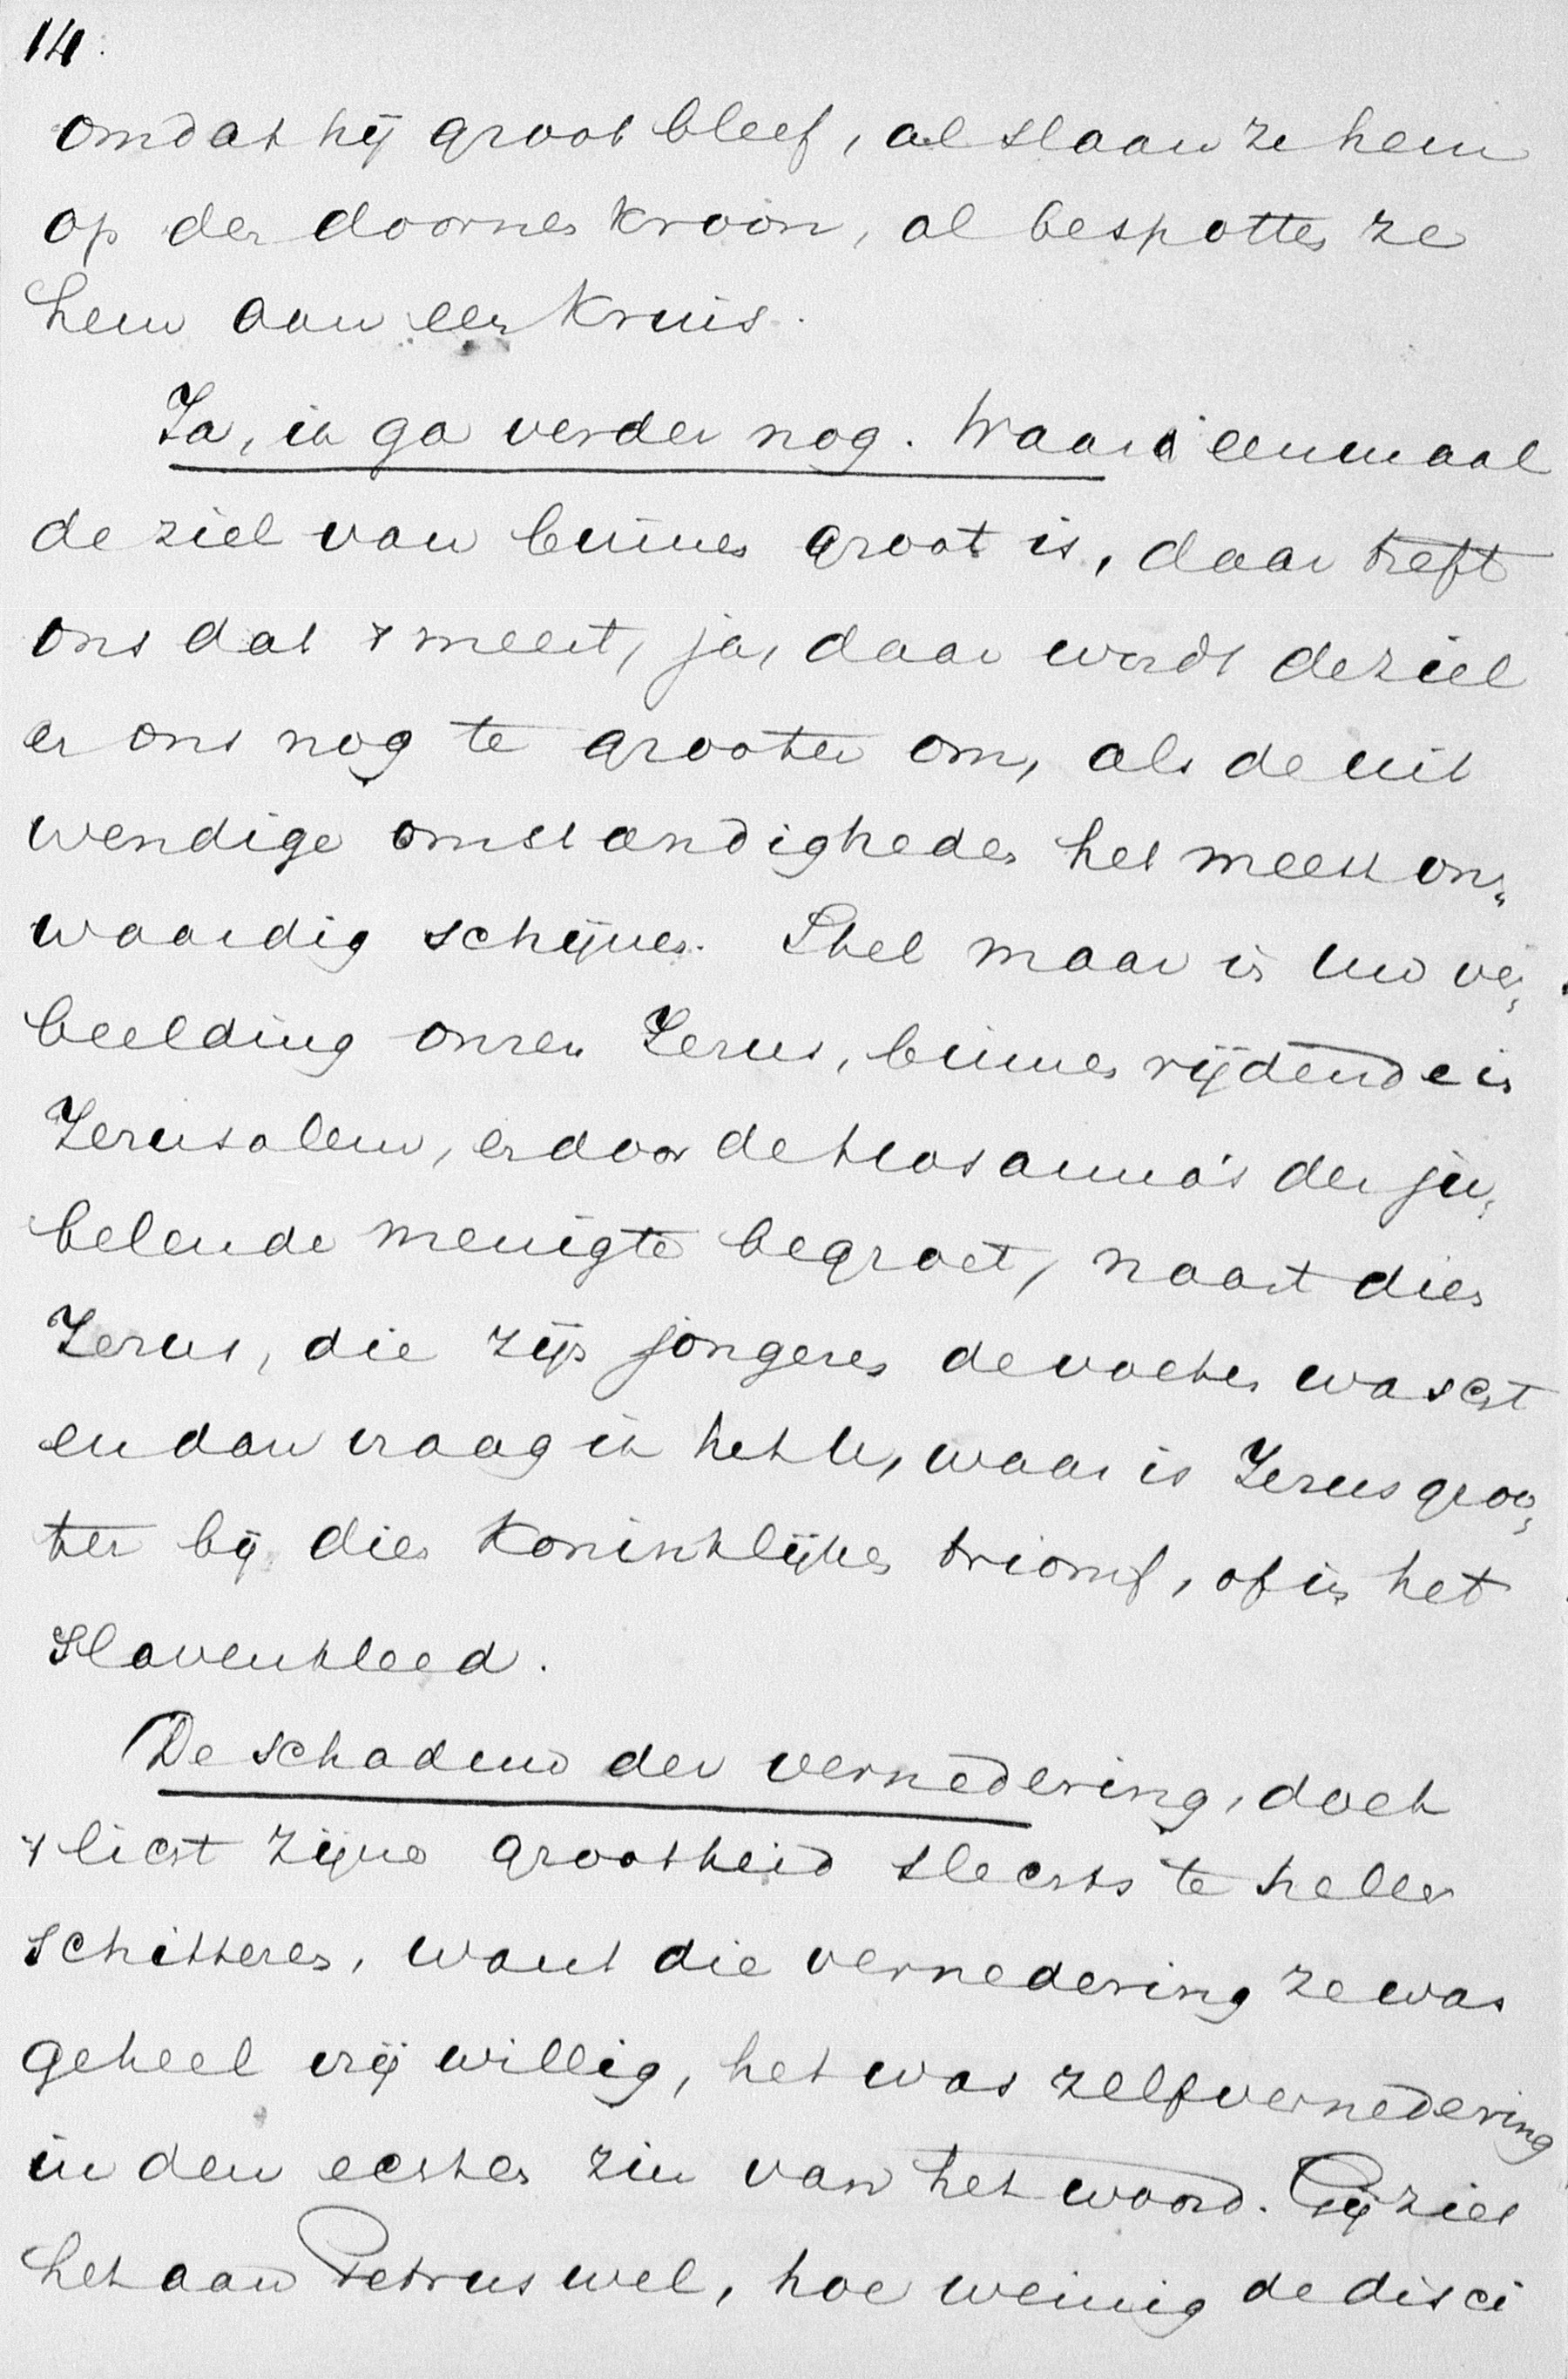 14.
omdat hij groot bleef, al slaan ze hem
op den doornen kroon, al bespotten ze
hem aan een kruis.
Ja, ik ga verder nog. Waar eenmaal
de ziel van binnen groot is, daar treft
ons dat 't meest, ja, daar wordt de ziel
er ons nog te grooter om, als de uit
wendige omstandigheden het meest on„
waardig schijnen. Stel maar in uw ver„
beelding onzen Jezus, binnen rijdende in
Jeruzalem, en door de hosanna's der ju„
belende menigte begroet, naast dien
Jezus, die zijn jongeren de voeten wascht
en dan vraag ik het U, waar is Jezus groo„
ter bij dien koninklijken triomf, of in het
slavenkleed.
De schaduw der vernedering, doet
't licht zijner grootheid slechts te heller
schitteren, want die vernedering ze was
geheel vrijwillig, het was zelfvernedering
in den echten zin van het woord. Gij ziet
het aan Petrus wel, hoe weinig de disci